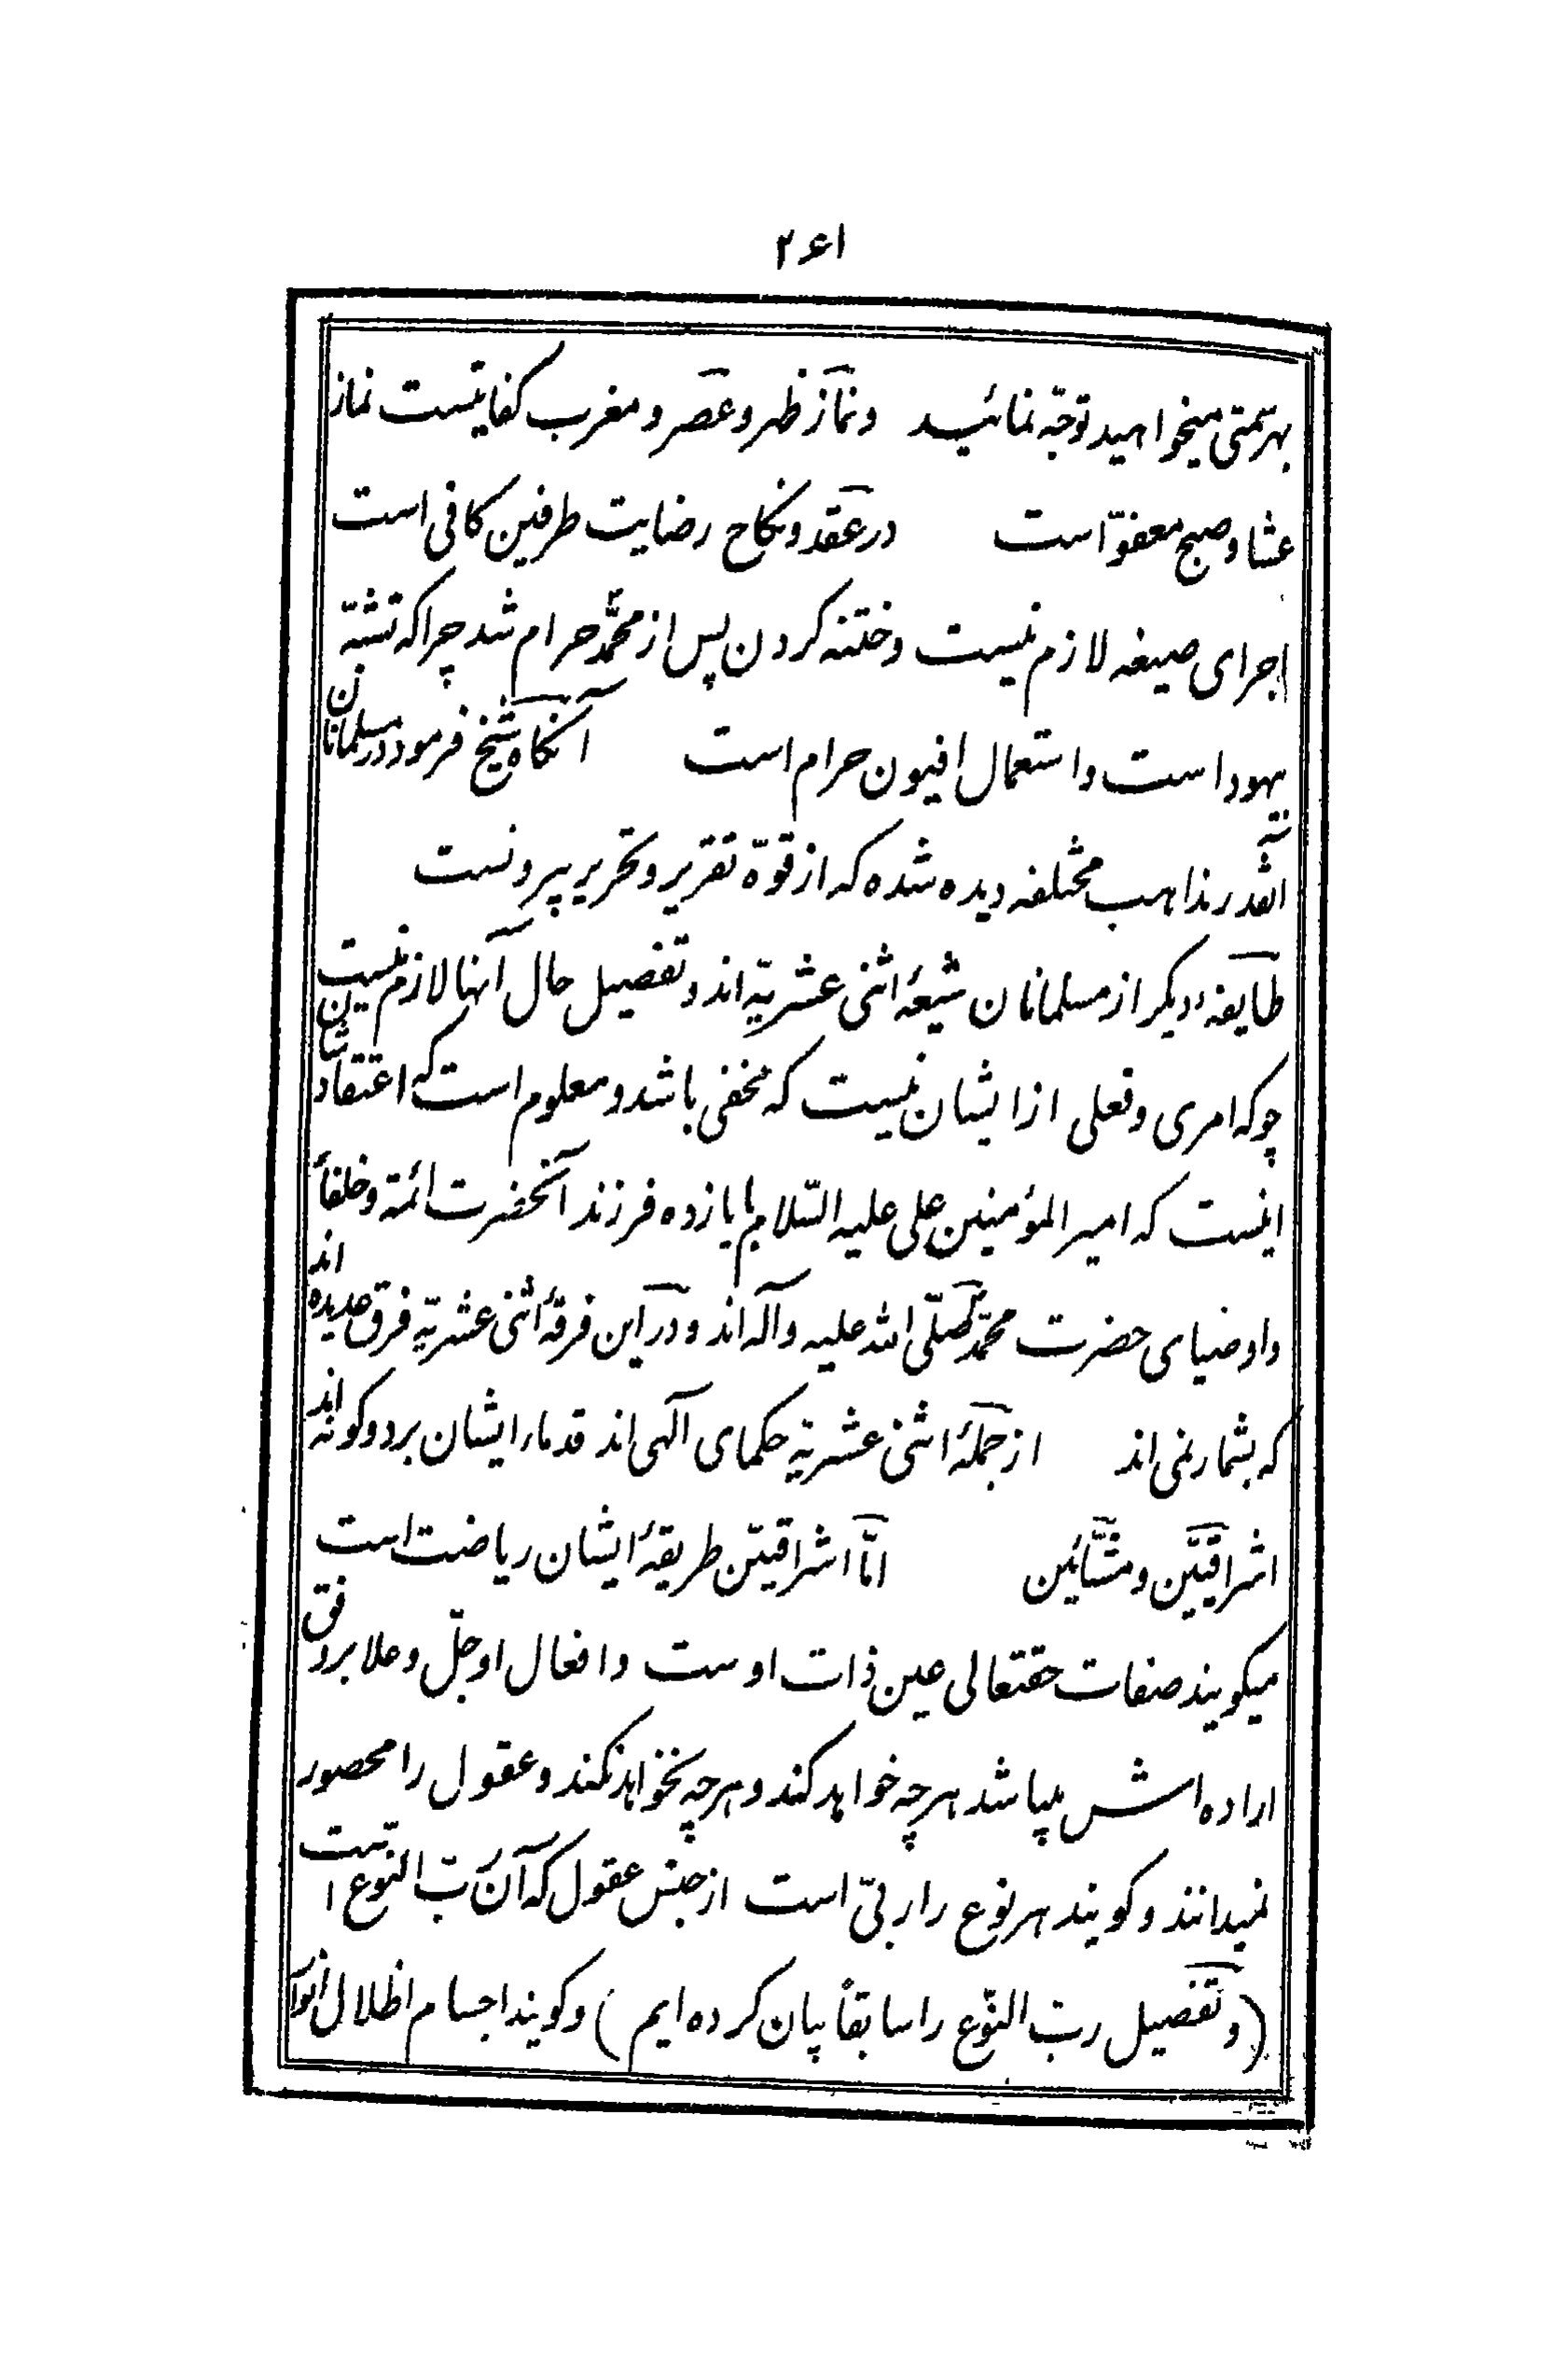 ۲۶۱
بهر سمتی میخواهید توجّه نمائید ونماز ظهر وعصر و مغرب کفایتست نماز
عشا و صبح معفوّ است در عقد و نکاح رضایت طرفین کافی است
اجرای صیغه لازم نیست وختنه کردن پس از محمّد حرام شد چراکه تشبّه
یهود است واستعمال افیون حرام است آنکاه شیخ فرمود در مسلمانان
آنقدر مذاهب مختلفه دیده شده که از قوّه تقریر و تحریر بیرونست
طایفهٔ دیکر از مسلمانان شیعهٔ اثنی عشریّه اند وتفصیل حال آنها لازم نیست
چوکه امری وفعلی از ایشان نیست که مخفی باشد و معلوم است که اعتقاد شان
اینست که امیر المؤمنین علی علیه السّلام با یازده فرزند آنحضرت ائمّة وخلفاً
واوصیای حضرت محمّد صلّی الله علیه وآله اند و در این فرقهٔ اثنی عشریّه فرق عدیده اند
که بشمار نمی اند از جملهٔ اثنی عشریّه حکمای آلهی اند قدماء ایشان بر دو کونه اند
اشراقیّین و مشّائین امّا اشراقیّن طریقهٔ ایشان ریاضت است
میکویند صفات حقتعالی عین ذات اوست وافعال او جلّ وعلا بر وفق
اراده اش میباشد هرچه خواهد کند وهرچه نخواهد نکند وعقول را محصور
نمیدانند وکویند هر نوع را ربّی است از جنس عقول که آن ربّ النوع است
(وتفصیل ربّ النّوع را سابقاً بیان کرده ایم) وکویند اجسام اظلال انوار